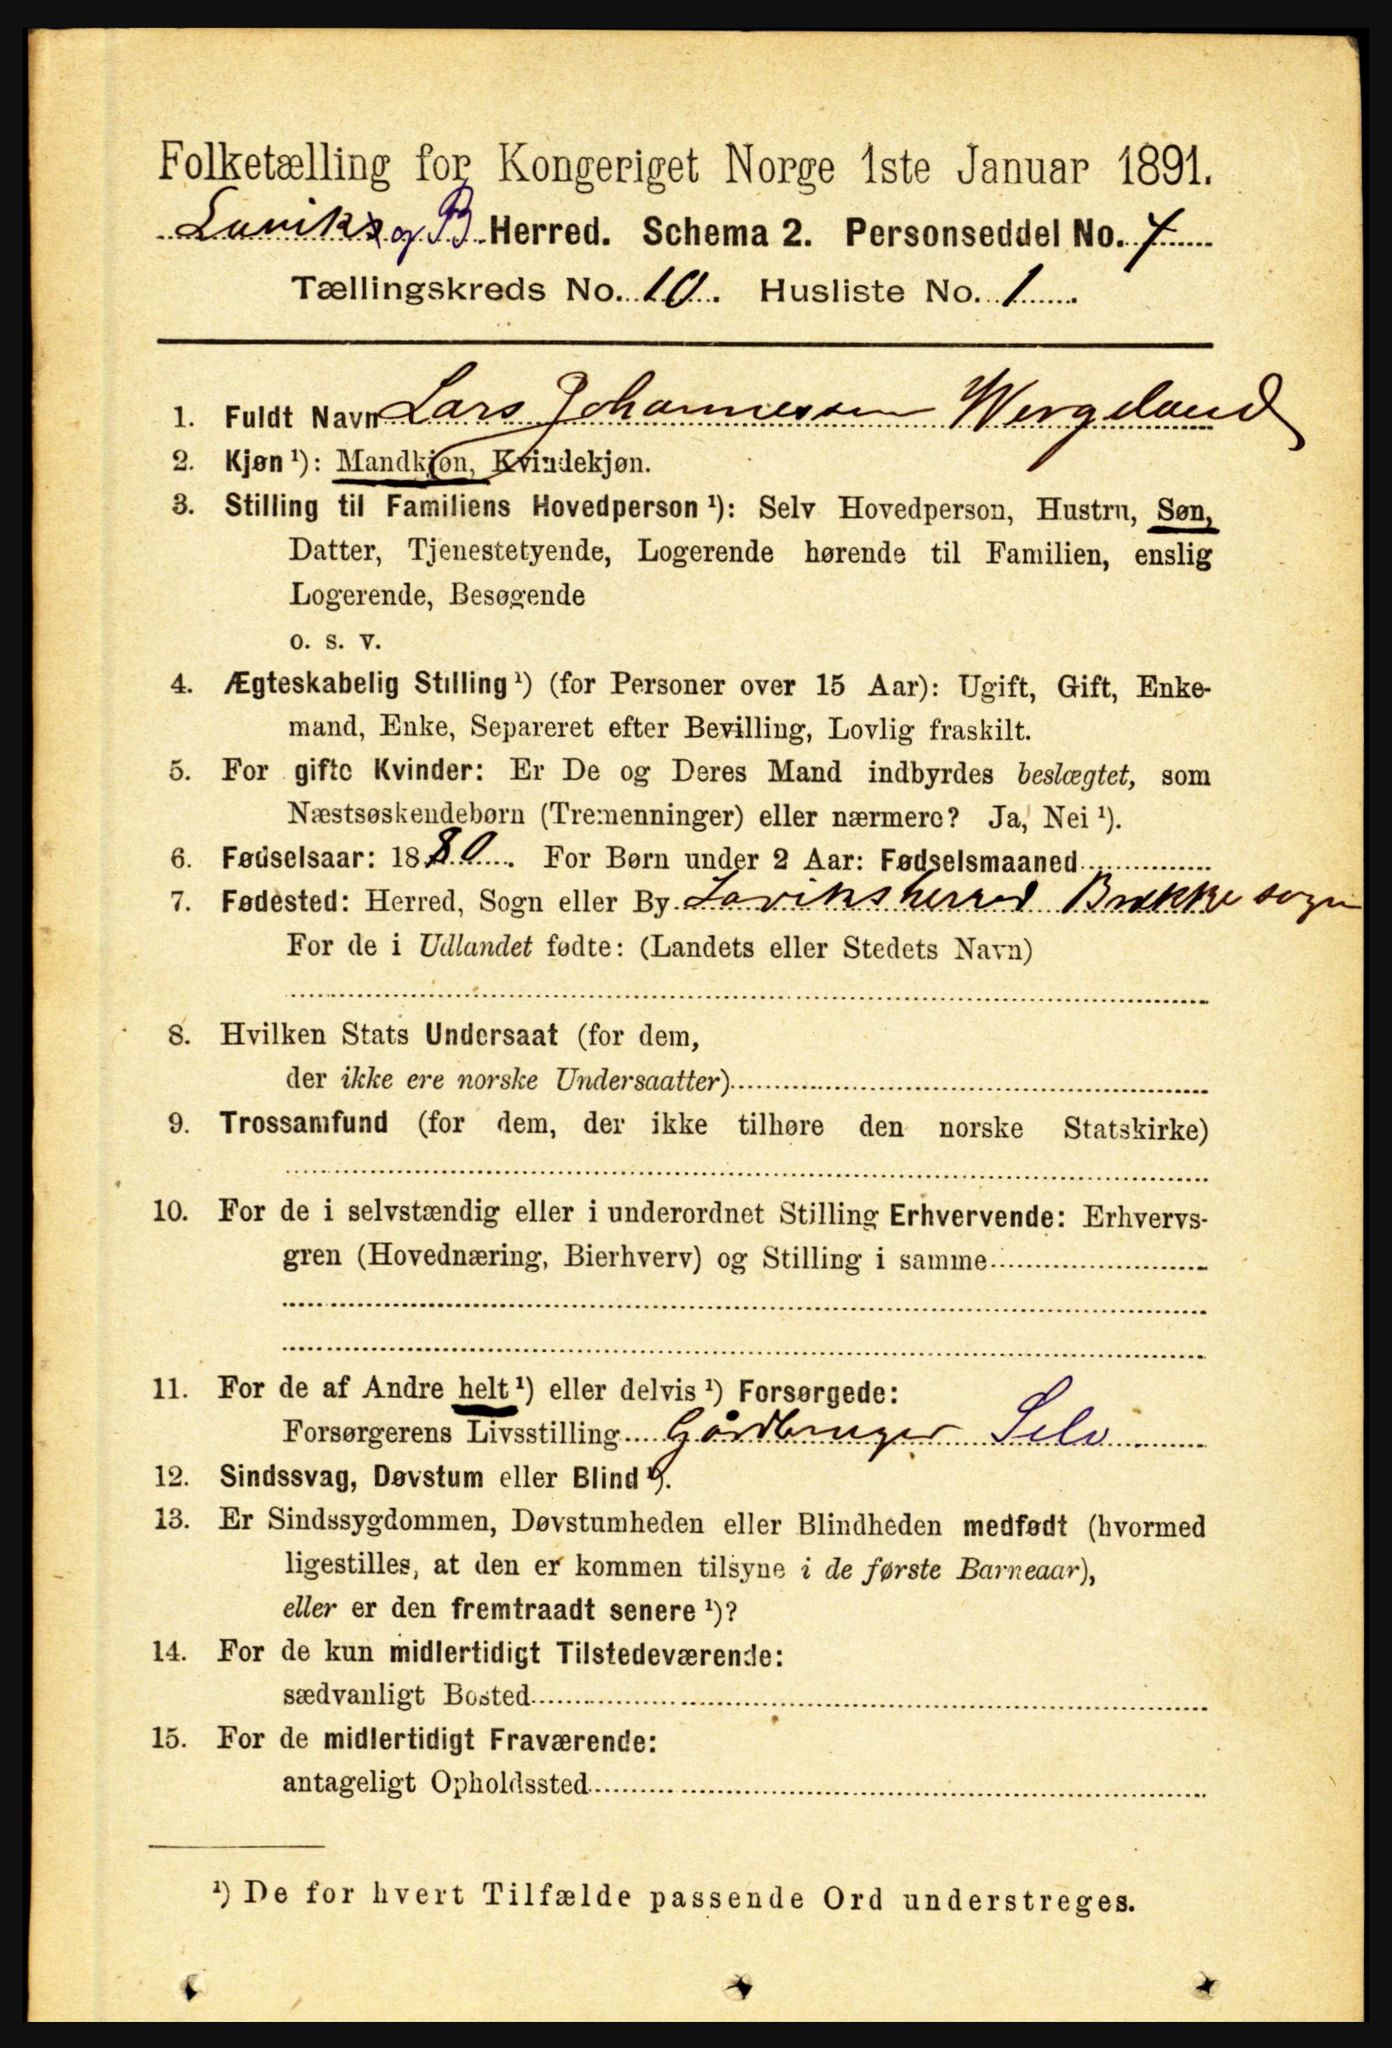 Folketælling for Kongeriget Norge 1ste Januar 1891.
Laviks og B Herred. Schema 2. Personseddel No. 7
Tællingskreds No. 10. Husliste No. 1
1. Fuldt Navn Lars Johannessen Wergeland
2. Kjøn ¹): Mandkjøn, Kvindekjøn.
3. Stilling til Familiens Hovedperson ¹): Selv Hovedperson, Hustru, Søn,
Datter, Tjenestetyende, Logerende hørende til Familien, enslig
Logerende, Besøgende
o. s. v.
4. Ægteskabelig Stilling ¹) (for Personer over 15 Aar): Ugift, Gift, Enke-
mand, Enke, Separeret efter Bevilling, Lovlig fraskilt.
5. For gifte Kvinder: Er De og Deres Mand indbyrdes beslægtet, som
Næstsøskendebørn (Tremenninger) eller nærmere? Ja, Nei ¹).
6. Fødselsaar: 1880. For Børn under 2 Aar: Fødselsmaaned
7. Fødested: Herred, Sogn eller By Laviks herred Brekke sogn
For de i Udlandet fødte: (Landets eller Stedets Navn)
8. Hvilken Stats Undersaat (for dem,
der ikke ere norske Undersaatter)
9. Trossamfund (for dem, der ikke tilhøre den norske Statskirke)
10. For de i selvstændig eller i underordnet Stilling Erhvervende: Erhvervs-
gren (Hovednæring, Bierhverv) og Stilling i samme
11. For de af Andre helt ¹) eller delvis ¹) Forsørgede:
Forsørgerens Livsstilling Gårdbruger Selv
12. Sindssvag, Døvstum eller Blind ¹).
13. Er Sindssygdommen, Døvstumheden eller Blindheden medfødt (hvormed
ligestilles, at den er kommen tilsyne i de første Barneaar),
eller er den fremtraadt senere ¹)?
14. For de kun midlertidigt Tilstedeværende:
sædvanligt Bosted
15. For de midlertidigt Fraværende:
antageligt Opholdssted
¹) De for hvert Tilfælde passende Ord understreges.